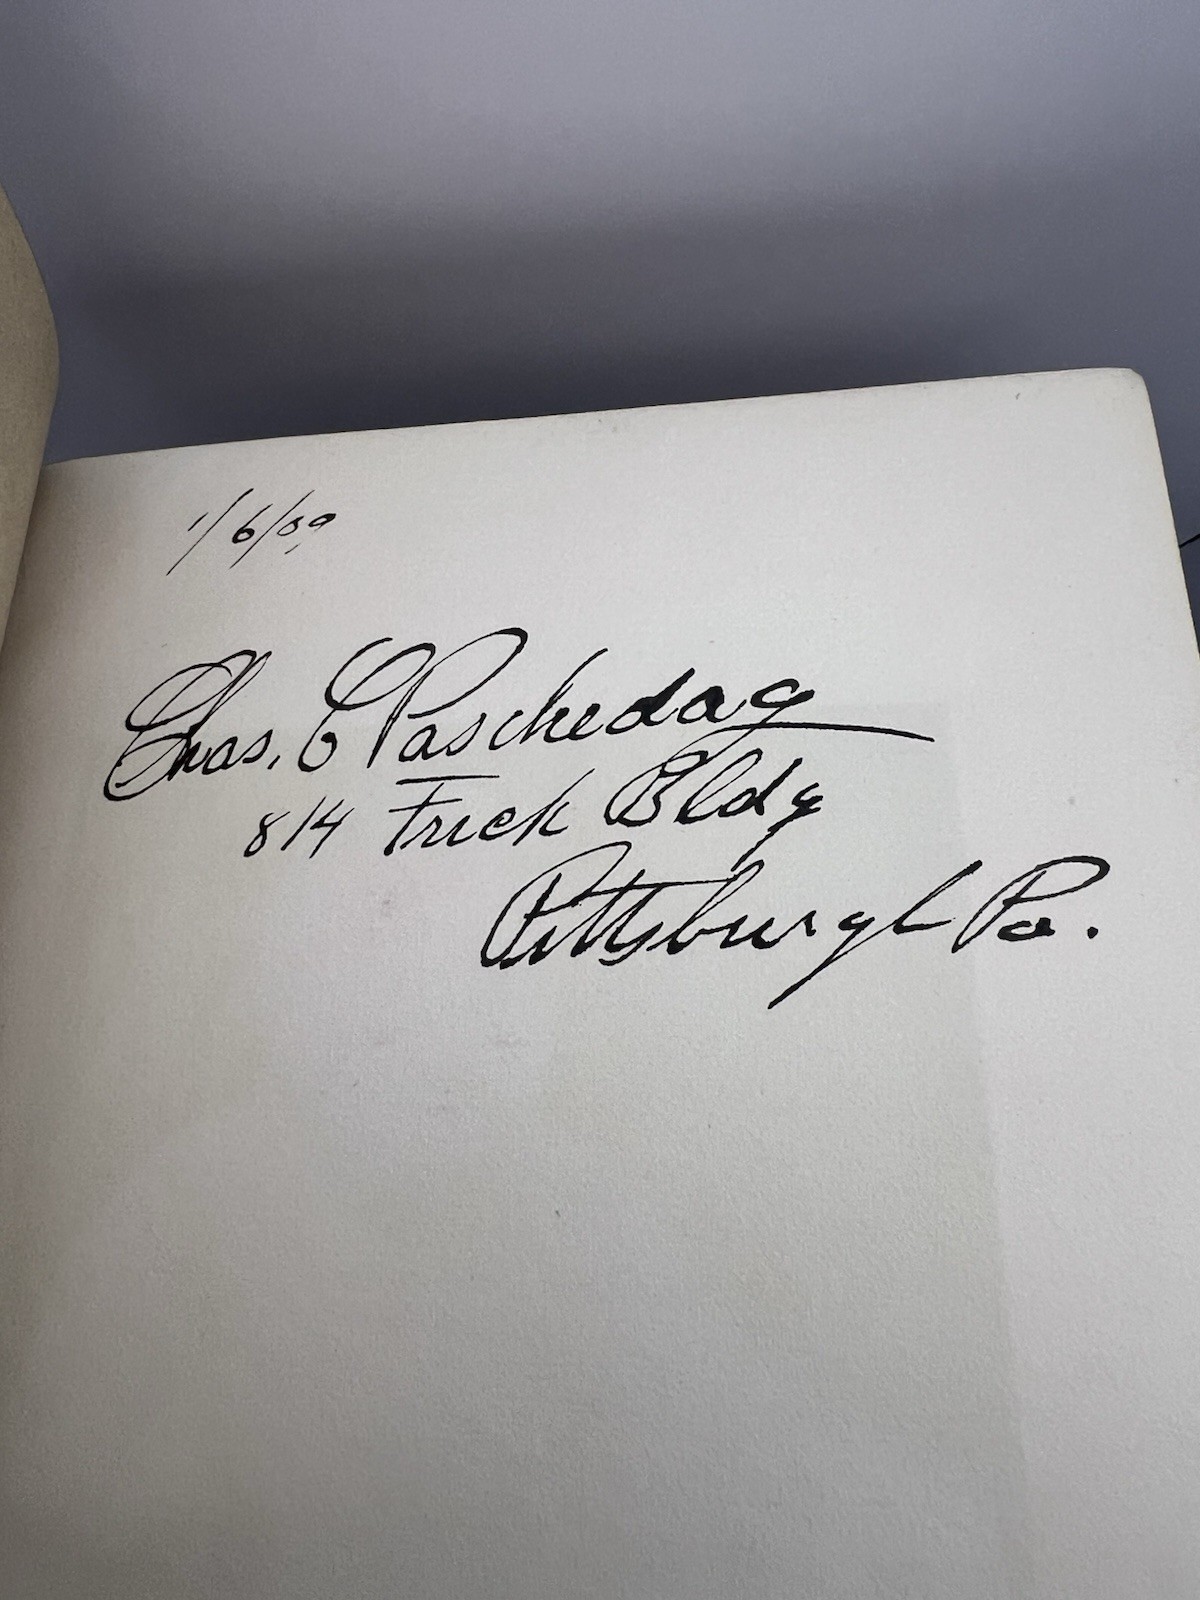 1/6/09
Chas. C Paschedag
814 Frick Bldg
Pittsburgh Pa.